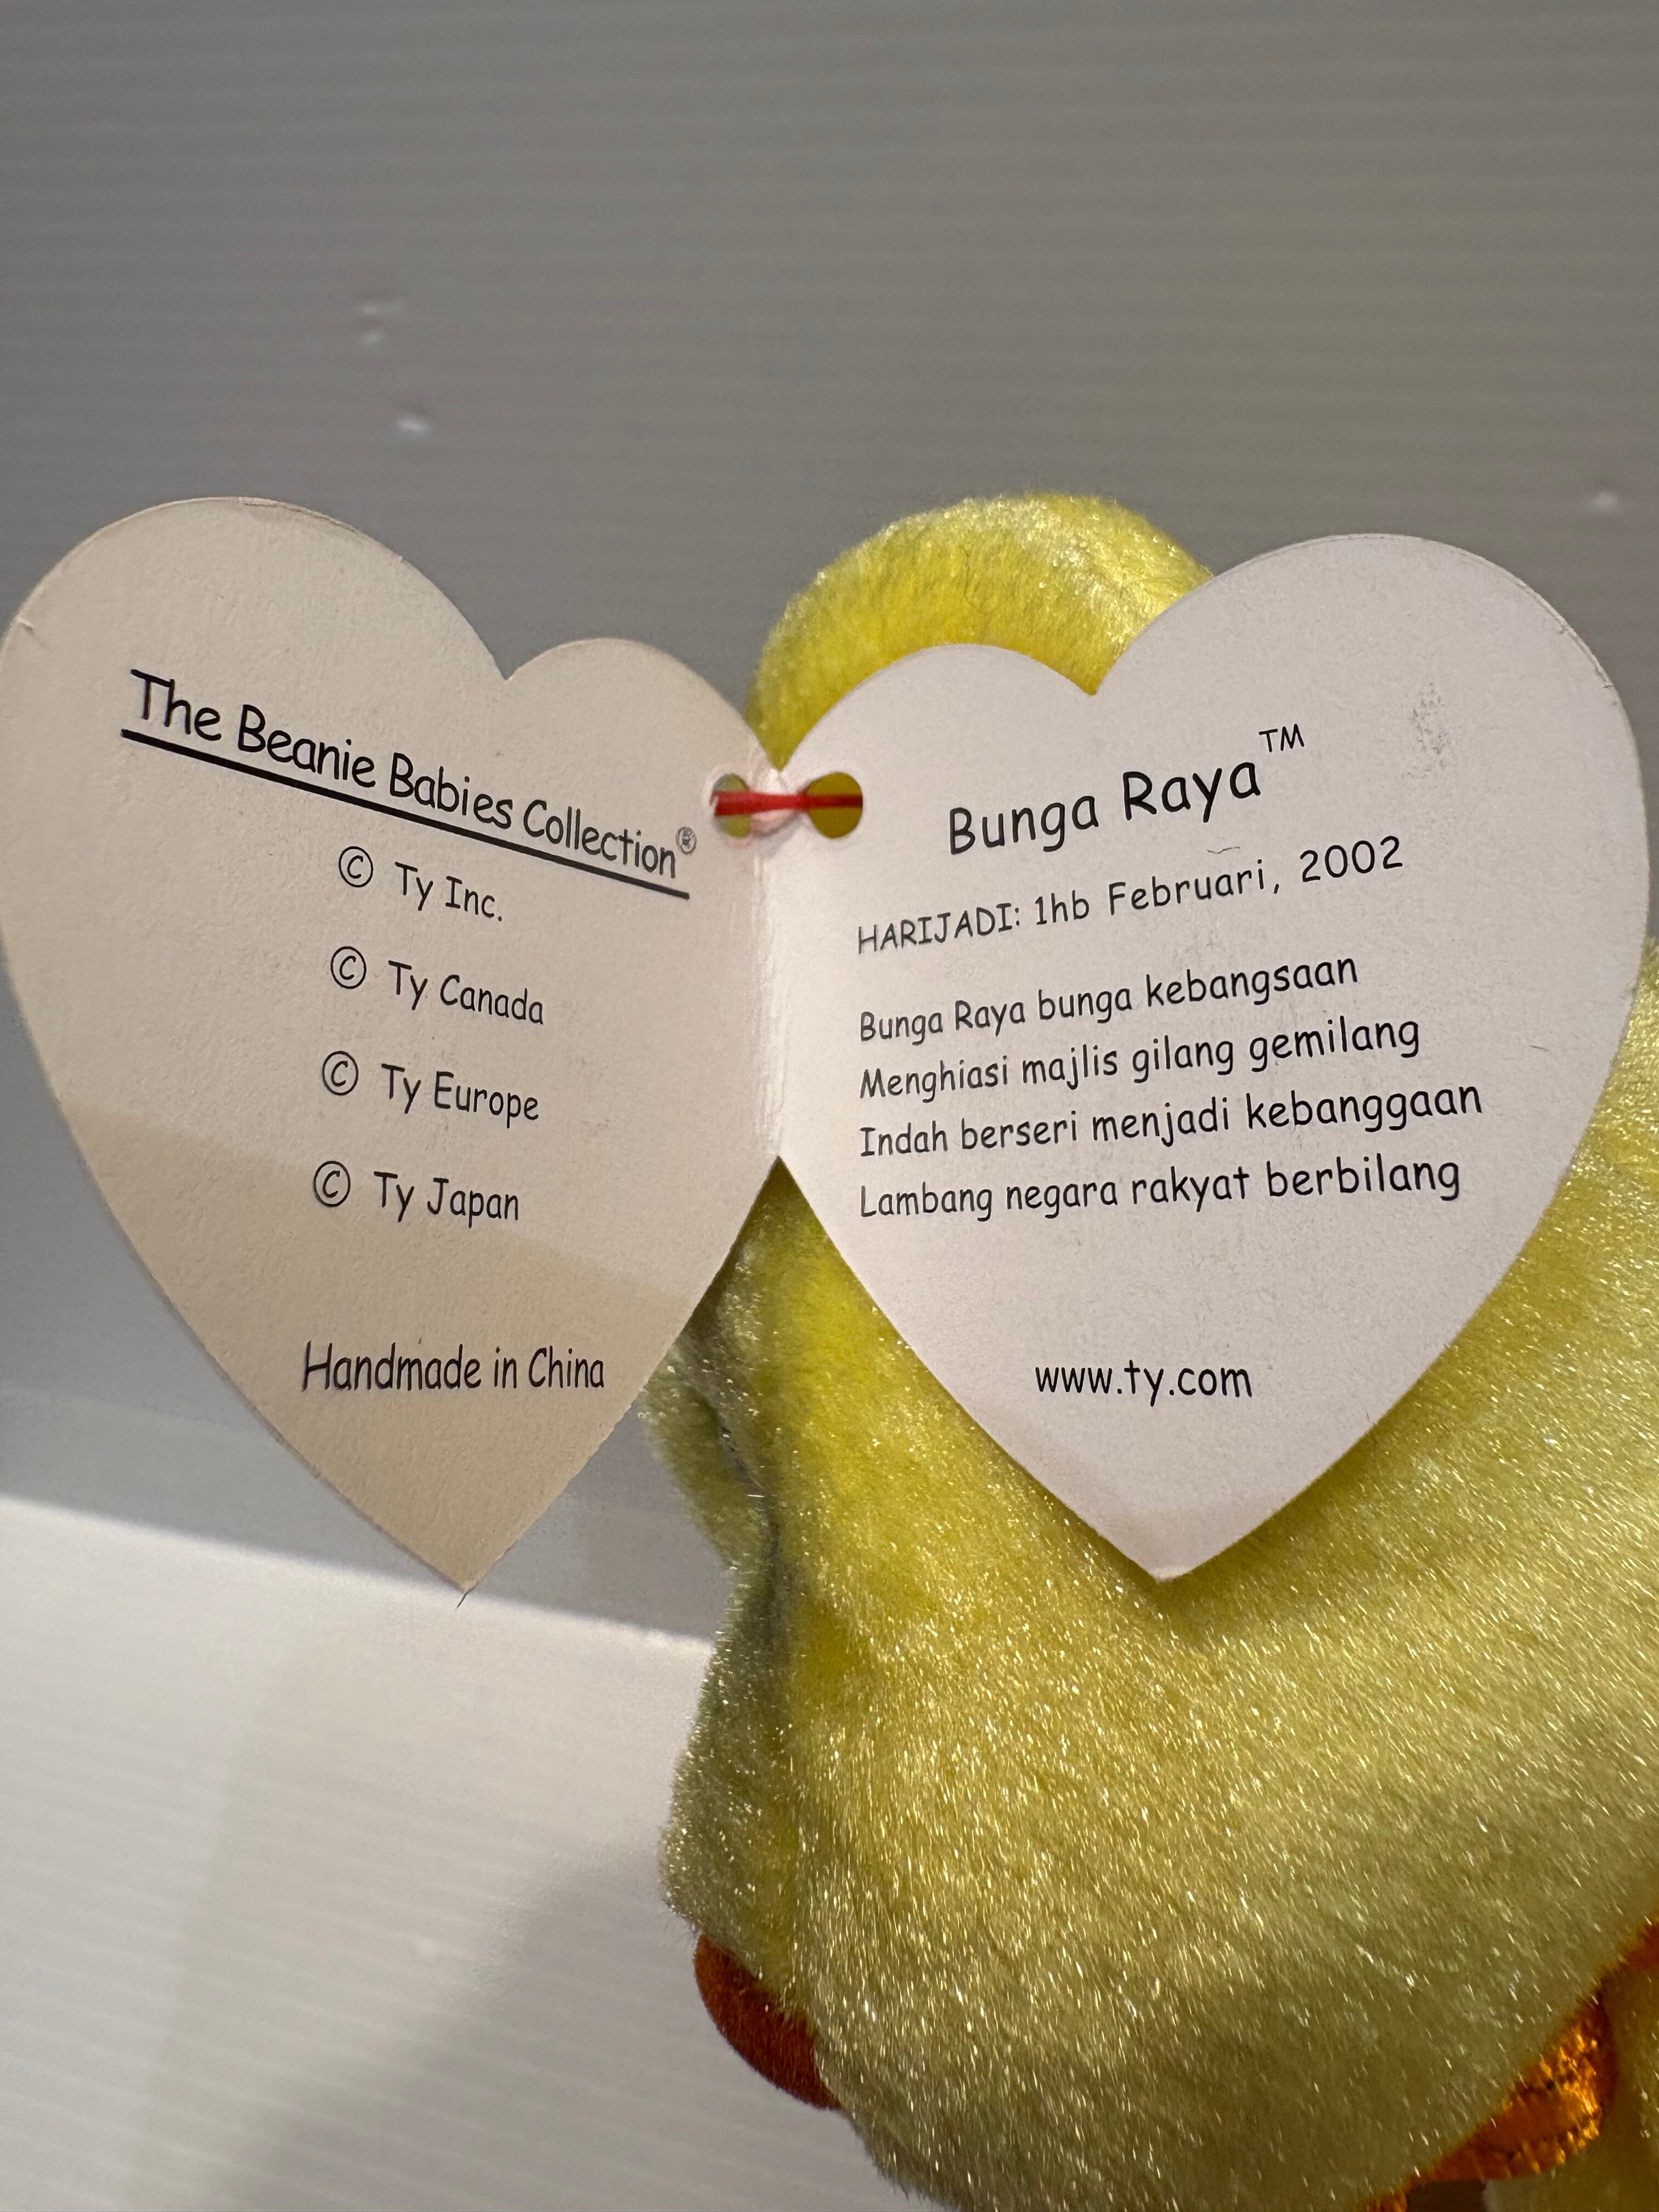 The Beanie Babies Collection®
© Ty Inc.
© Ty Canada
© Ty Europe
© Ty Japan
Handmade in China
Bunga Raya™
HARIJADI: 1hb Februari, 2002
Bunga Raya bunga kebangsaan
Menghiasi majlis gilang gemilang
Indah berseri menjadi kebanggaan
Lambang negara rakyat berbilang
www.ty.com